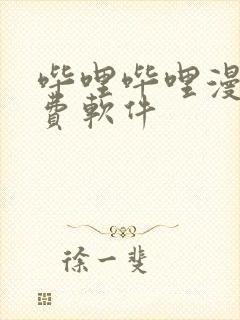 哔哩哔哩漫
費軟件
徐一斐